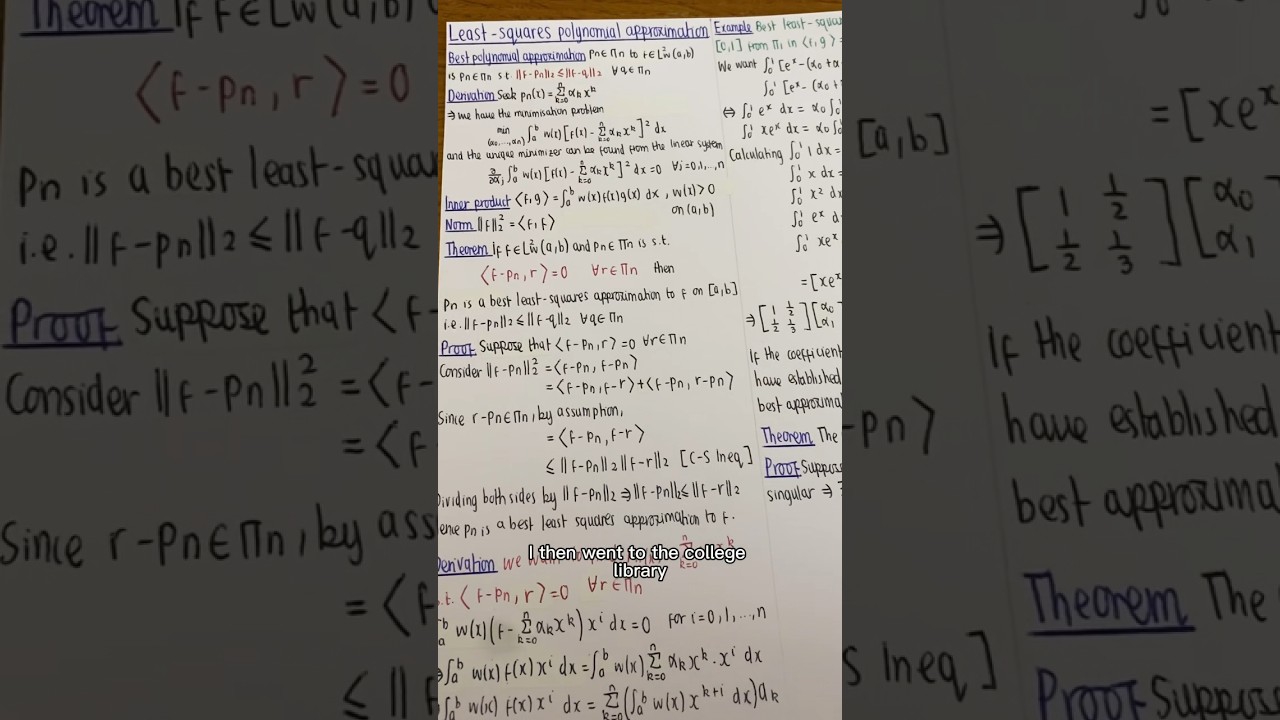 Least-squares polynomial approximation
Best polynomial approximation Pn∈Πn to f∈L²w(a,b)
is Pn∈Πn s.t. ||f-Pn||₂ ≤ ||f-q||₂ ∀q∈Πn
Derivation Seek pn(x) = Σ_{k=0}^{n} αk x^k
⇒ we have the minimisation problem
min_{(α0,...,αn)} ∫_a^b w(x)[f(x) - Σ_{k=0}^{n} αk x^k]² dx
and the unique minimizer can be found from the linear system
∂/∂αj ∫_a^b w(x)[f(x) - Σ_{k=0}^{n} αk x^k]² dx = 0 ∀j=0,1,...,n
Inner product ⟨f,g⟩ = ∫_a^b w(x)f(x)g(x) dx , w(x)>0
on (a,b)
Norm ||f||₂² = ⟨f,f⟩
Theorem If f∈L²w(a,b) and pn∈Πn is s.t.
⟨f-pn,r⟩=0 ∀r∈Πn then
Pn is a best least-squares approximation to f on [a,b]
i.e. ||f-pn||₂ ≤ ||f-q||₂ ∀q∈Πn
Proof Suppose that ⟨f-pn,r⟩=0 ∀r∈Πn
Consider ||f-pn||₂² = ⟨f-pn, f-pn⟩
= ⟨f-pn,f-r⟩+⟨f-pn, r-pn⟩
Since r-pn∈Πn, by assumption,
= ⟨f-pn,f-r⟩
≤ ||f-pn||₂||f-r||₂ [C-S Ineq]
ividing both sides by ||f-pn||₂ ⇒ ||f-pn||₂ ≤ ||f-r||₂
ence pn is a best least squares approximation to f.
Derivation we
s.t. ⟨f-pn,r⟩=0 ∀r∈Πn
∫_a^b w(x)(f- Σ_{k=0}^{n} αk x^k) x^i dx=0 for i=0,1,...,n
⇒∫_a^b w(x) f(x) x^i dx = ∫_a^b w(x) Σ_{k=0}^{n} αk x^k · x^i dx
∫_a^b w(x) f(x) x^i dx = Σ_{k=0}^{n} (∫_a^b w(x) x^{k+i} dx) αk
Example Best least-squa
[0,1] from Π₁ in ⟨f,g⟩ =
We want ∫_0^1 [e^x-(α0+α
∫_0^1 [e^x-(α0+
⇔ ∫_0^1 e^x dx = α0 ∫
∫_0^1 xe^x dx = α0 ∫
Calculating ∫_0^1 1 dx =
∫_0^1 x dx =
∫_0^1 x² d
∫_0^1 e^x d
∫_0^1 xe^x
=[xe^x
⇒ [1 1/2; 1/2 1/3] [α0 α1
If the coefficient
have established
best approxima
Theorem The
Proof Suppos
singular ⇒
I then went to the college
library
Theorem If f∈L²w(a,b)
⟨f-pn,r⟩=0
Pn is a best least-squar
i.e. ||f-pn||₂ ≤ ||f-q||₂
Proof Suppose that ⟨f-
Consider ||f-pn||₂² = ⟨f-
= ⟨f
Since r-pn∈Πn, by ass
= ⟨f
≤ ||f
=[xe^x
[a,b]
⇒ [1 1/2; 1/2 1/3] [α0 α1
If the coefficient
-pn⟩
have established
best approxima
Theorem The
S Ineq]
Proof Suppos